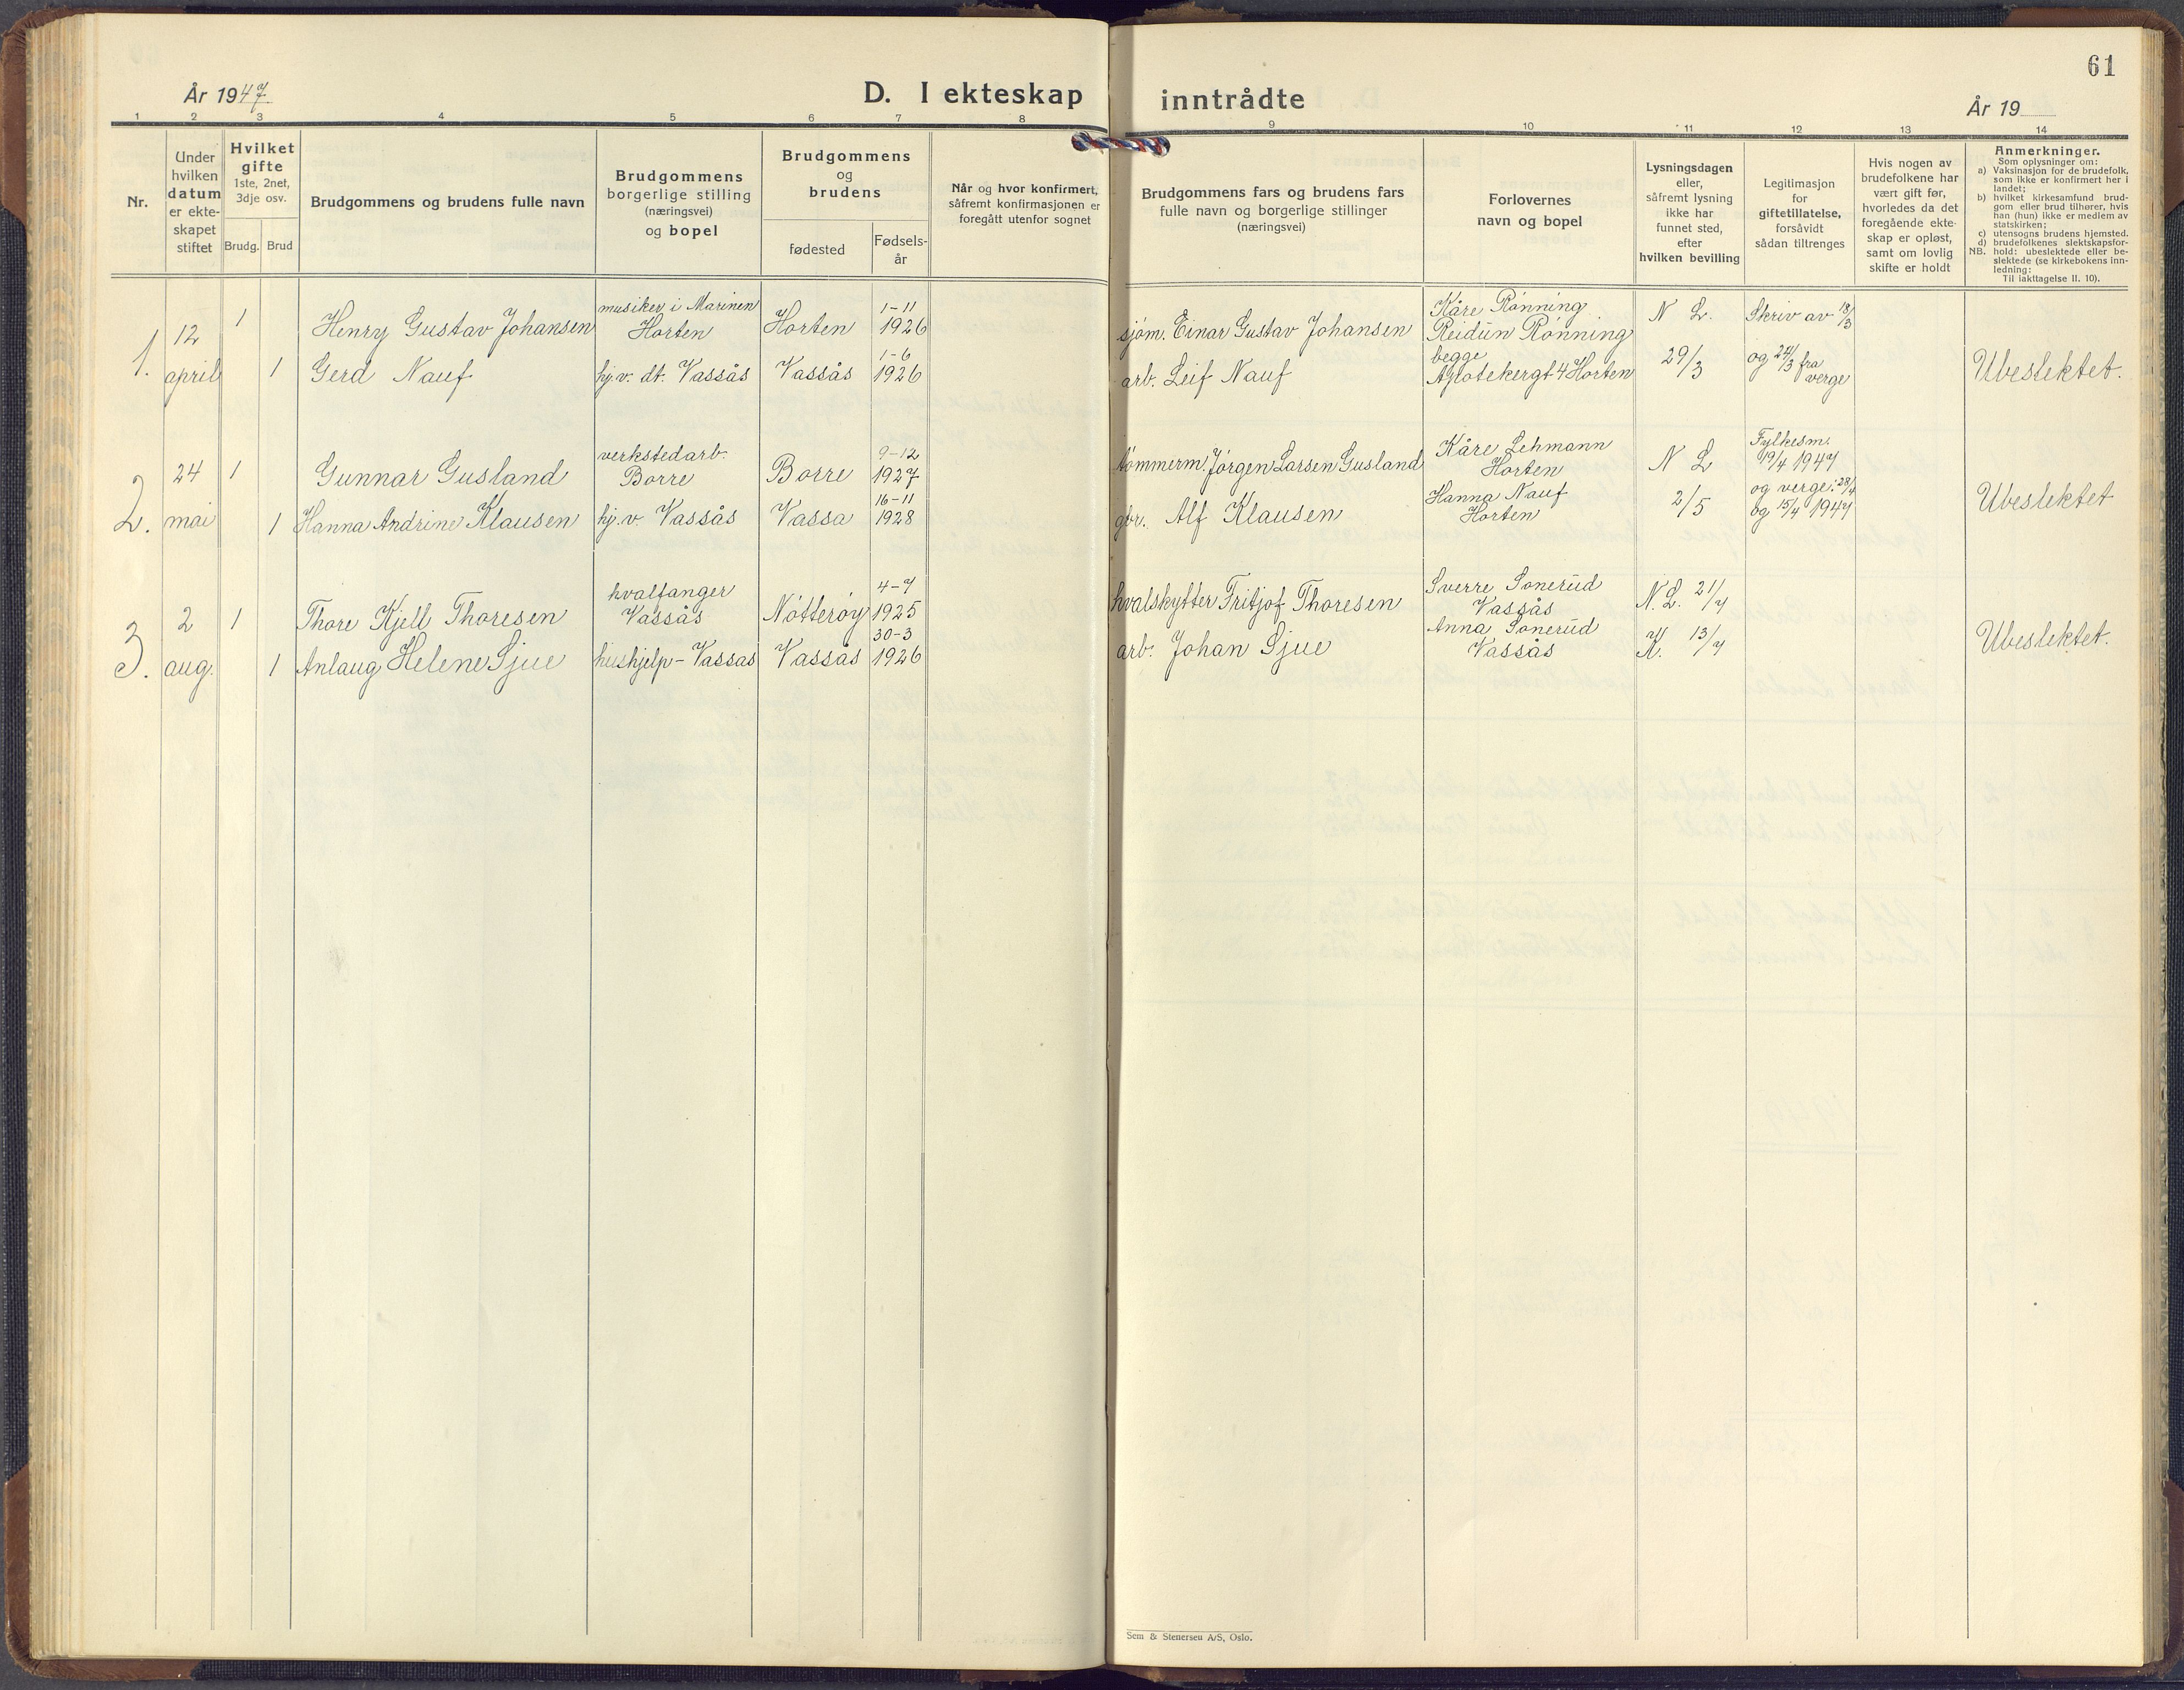 61
År 1947
D. I ekteskap inntrådte
År 19
1 2 3 4 5 6 7 8 9 10 11 12 13 14
Nr.
Under
hvilken
datum
er ekte-
skapet
stiftet
Hvilket
gifte
1ste, 2net,
3dje osv.
Brudg. Brud
Brudgommens og brudens fulle navn
Brudgommens
borgerlige stilling
(næringsvei)
og bopel
Brudgommens
og
brudens
fødested
Fødsels-
år
Når og hvor konfirmert,
såfremt konfirmasjonen er
foregått utenfor sognet
Brudgommens fars og brudens fars
fulle navn og borgerlige stillinger
(næringsvei)
Forlovernes
navn og bopel
Lysningsdagen
eller,
såfremt lysning
ikke har
funnet sted,
efter
hvilken bevilling
Legitimasjon
for
giftetillatelse,
forsåvidt
sådan tiltrenges
Hvis nogen av
brudefolkene har
vært gift før,
hvorledes da det
foregående ekte-
skap er opløst,
samt om lovlig
skifte er holdt
Anmerkninger.
Som oplysninger om:
a) Vaksinasjon for de brudefolk,
som ikke er konfirmert her i
landet;
b) hvilket kirkesamfund brud-
gom eller brud tilhører, hvis
han (hun) ikke er medlem av
statskirken;
c) utensogns brudens hjemsted.
d) brudefolkenes slektskapsfor-
NB. hold: ubeslektede eller be-
slektede (se kirkebokens inn-
ledning:
Til iakttagelse II. 10).
1.
12
april
1
1
Henry Gustav Johansen
Gerd Nauf
musiker i Marinen
Horten
hj.v. dt. Vassås
Horten
Vassås
1-11
1926
1-6
1926
sjøm. Einar Gustav Johansen
arb. Leif Nauf
Kåre Rønning
Reidun Rønning
begge
Apotekergt 4 Horten
N L.
29/3
Skriv av 18/3
og 24/3 fra
verge
Ubeslektet.
2.
24
mai
1
1
Gunnar Gusland
Hanna Andrine Klausen
verkstedarb.
Borre
hj.v. Vassås
Borre
Vassa
9-12
1927
16-11
1928
tømmerm Jørgen Larsen Gusland
gbr. Alf Klausen
Kåre Lehmann
Horten
Hanna Nauf
Horten
N L
2/5
Fylkesm.
19/4 1947
og verge: 28/4
og 15/4 1947
Ubeslektet
3.
2
aug.
1
1
Thore Kjell Thoresen
Anlaug Helene Sjue
hvalfanger
Vassås
hushjelp - Vassas
Nøtterøy
Vassås
4-7
1925
30-3
1926
hvalskytter Fritjof Thoresen
arb. Johan Sjue
Sverre Sonerud
Vassås
Anna Sonerud
Vassås
N. L. 21/7
K. 13/7
Ubeslektet.
Sem & Stenersen A/S, Oslo.